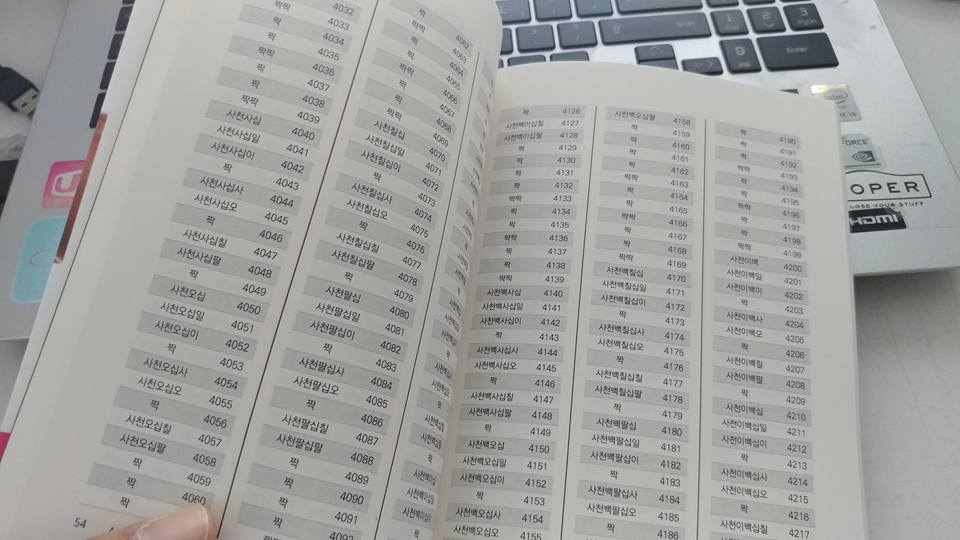 4032
짝짝 4033
짝 4034
짝 4035
짝짝 4036
짝 4037
짝 4038
짝짝 4039
사천사십 4040
사천사십일 4041
사천사십이 4042
짝 4043
사천사십사 4044
사천사십오 4045
짝 4046
사천사십칠 4047
사천사십팔 4048
짝 4049
사천오십 4050
사천오십일 4051
사천오십이 4052
짝 4053
사천오십사 4054
사천오십오 4055
짝 4056
사천오십칠 4057
사천오십팔 4058
짝 4059
짝 4060
54
짝 4062
짝짝 4063
짝 4064
짝 4065
짝짝 4066
짝 4067
짝 4068
짝짝 4069
사천칠십 4070
사천칠십일 4071
사천칠십이 4072
짝 4073
사천칠십사 4074
사천칠십오 4075
짝 4076
사천칠십칠 4077
사천칠십팔 4078
짝 4079
사천팔십 4080
사천팔십일 4081
사천팔십이 4082
짝 4083
사천팔십사 4084
사천팔십오 4085
짝 4086
사천팔십칠 4087
사천팔십팔 4088
짝 4089
짝 4090
짝 4091
짝 4126
사천백이십칠 4127
사천백이십팔 4128
짝 4129
짝 4130
짝 4131
짝 4132
짝짝 4133
짝 4134
짝 4135
짝짝 4136
짝 4137
짝 4138
짝짝 4139
사천백사십 4140
사천백사십일 4141
사천백사십이 4142
짝 4143
사천백사십사 4144
사천백사십오 4145
짝 4146
사천백사십칠 4147
사천백사십팔 4148
짝 4149
사천백오십 4150
사천백오십일 4151
사천백오십이 4152
짝 4153
사천백오십사 4154
사천백오십오 4155
사천백오십팔 4158
짝 4159
짝 4160
짝 4161
짝 4162
짝짝 4163
짝 4164
짝 4165
짝짝 4166
짝 4167
짝 4168
짝짝 4169
사천백칠십 4170
사천백칠십일 4171
사천백칠십이 4172
짝 4173
사천백칠십사 4174
사천백칠십오 4175
짝 4176
사천백칠십칠 4177
사천백칠십팔 4178
짝 4179
사천백팔십 4180
사천백팔십일 4181
사천백팔십이 4182
짝 4183
사천백팔십사 4184
사천백팔십오 4185
짝 4186
짝 4190
짝 4191
짝 4192
짝짝 4193
짝 4194
짝 4195
짝짝 4196
짝 4197
짝 4198
짝짝 4199
사천이백 4200
사천이백일 4201
사천이백이 4202
짝 4203
사천이백사 4204
사천이백오 4205
짝 4206
사천이백칠 4207
사천이백팔 4208
짝 4209
사천이백십 4210
사천이백십일 4211
사천이백십이 4212
짝 4213
사천이백십사 4214
사천이백십오 4215
짝 4216
사천이백십칠 4217
Shift
Enter
intel
OPER
HDMI